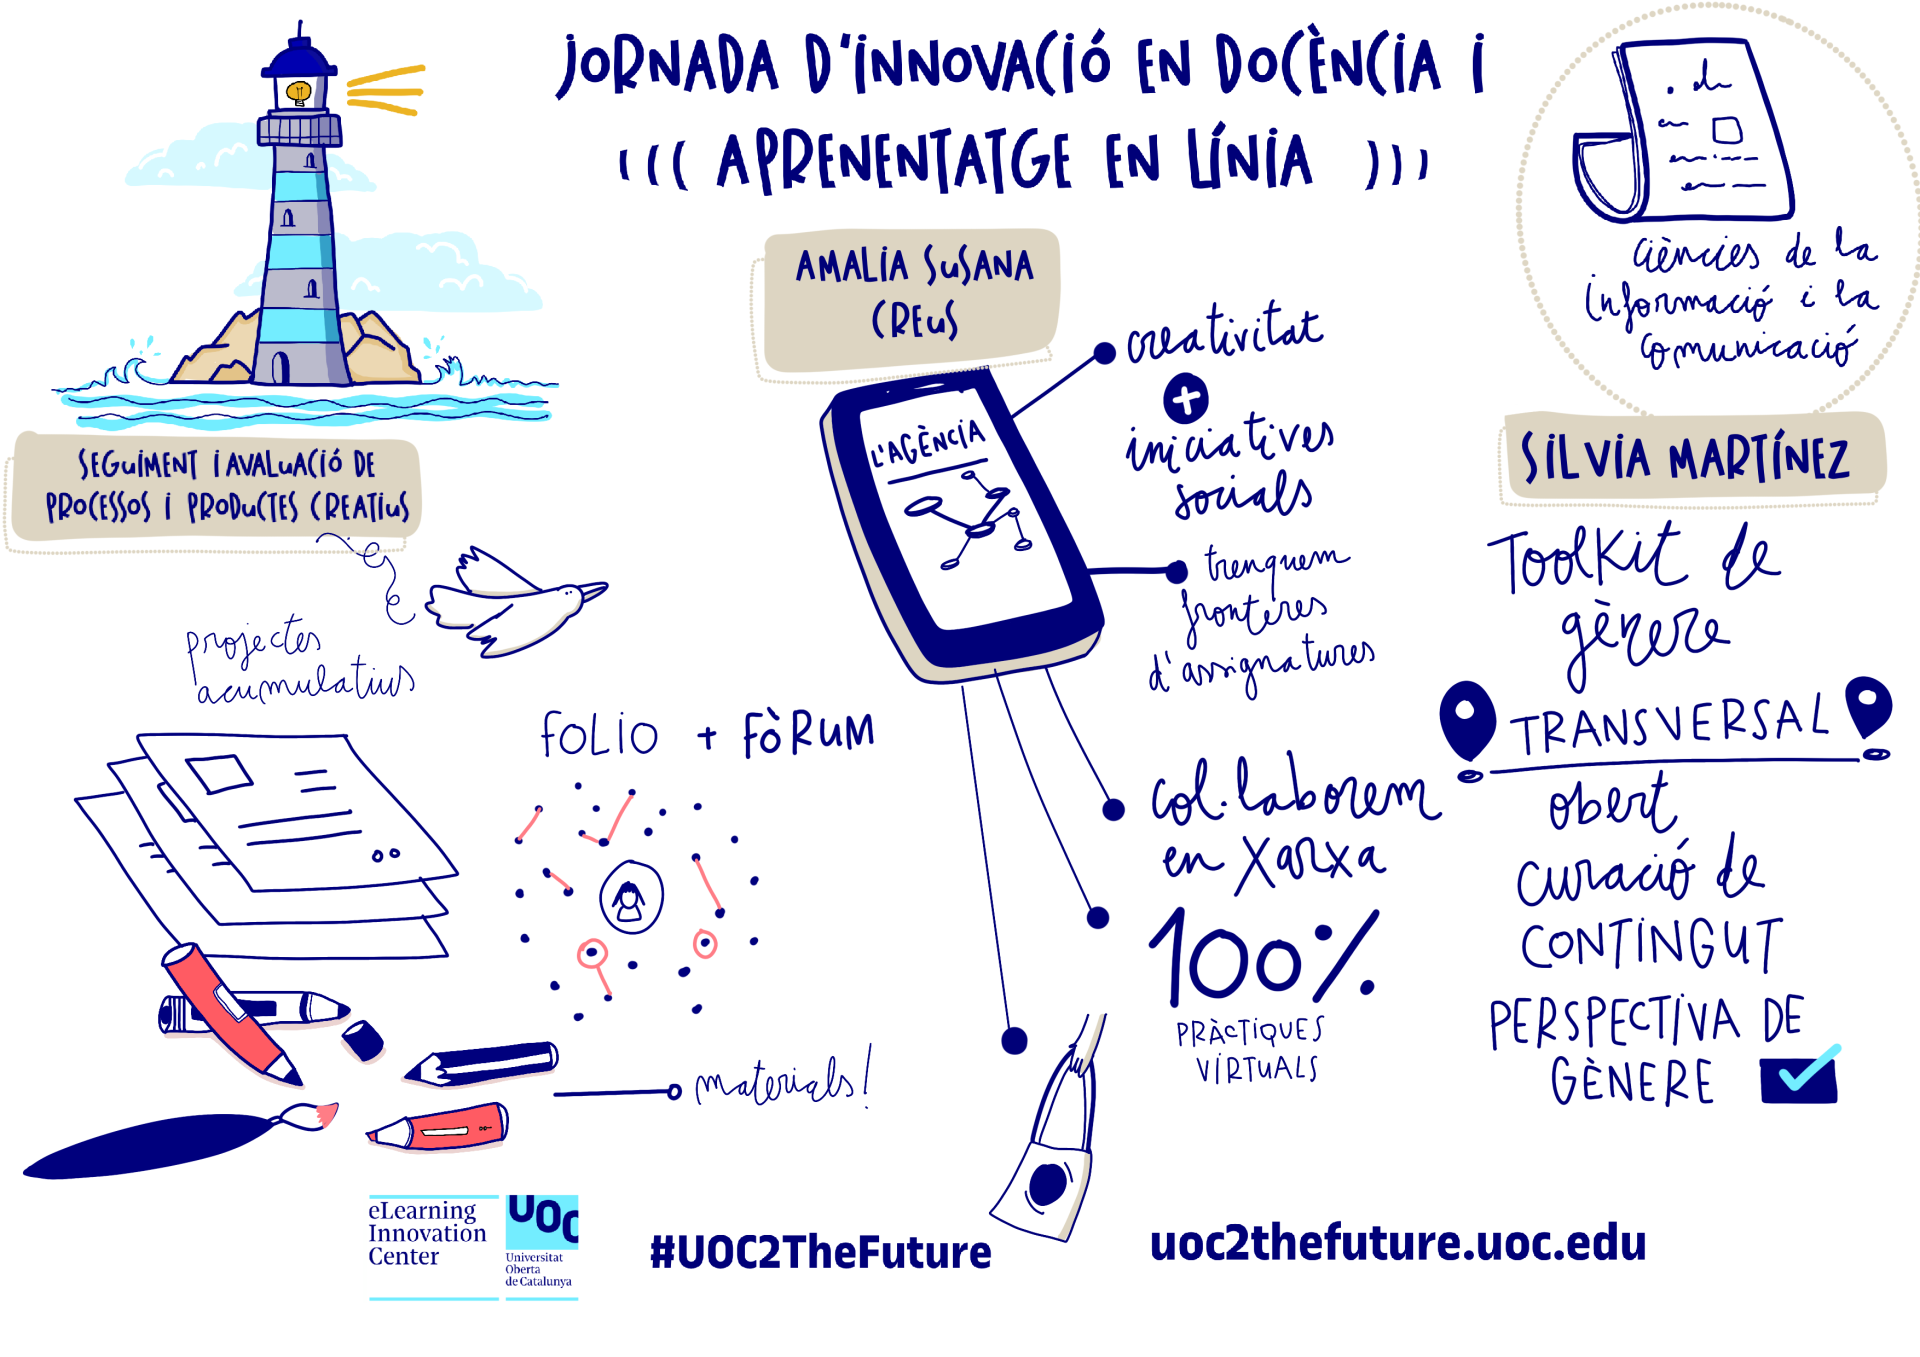 JORNADA D'INNOVACIÓ EN DOCÈNCIA I
((( APRENENTATGE EN LÍNIA )))
SEGUIMENT I AVALUACIÓ DE
PROCESSOS I PRODUCTES CREATIUS
projectes
acumulatius
FOLIO + FÒRUM
materials!
AMALIA SUSANA
CREUS
L'AGÈNCIA
creativitat
+
iniciatives
socials
trenquem
fronteres
d'assignatures
col·laborem
en xarxa
100%
PRÀCTIQUES
VIRTUALS
Ciències de la
Informació i la
Comunicació
SILVIA MARTÍNEZ
Toolkit de
gènere
TRANSVERSAL
obert
curació de
CONTINGUT
PERSPECTIVA DE
GÈNERE
eLearning
Innovation
Center
UOC
Universitat
Oberta
de Catalunya
#UOC2TheFuture
uoc2thefuture.uoc.edu